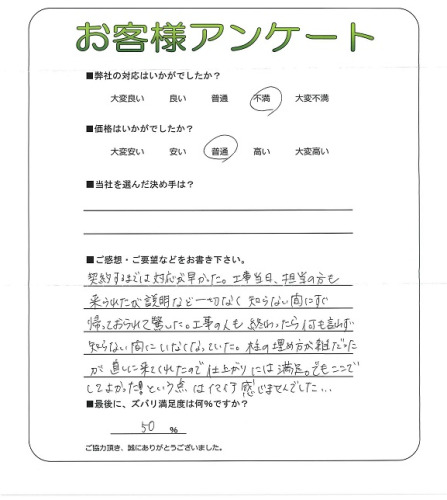 お客様アンケート
■弊社の対応はいかがでしたか？
大変良い　良い　普通　不満　大変不満
■価格はいかがでしたか？
大変安い　安い　普通　高い　大変高い
■当社を選んだ決め手は？
■ご感想・ご要望などをお書き下さい。
契約するまでは対応が早かった。工事当日、担当の方も
来られたが説明など一切なく知らない間にすぐ
帰っておられて驚いた。工事の人も終わったら何も言わず
知らない間にいなくなっていた。柱の埋め方が雑だった
が直しに来てくれたので仕上がりには満足。でもここで
してよかった！という点は感じませんでした…
■最後に、ズバリ満足度は何％ですか？
50 ％
ご協力頂き、誠にありがとうございました。